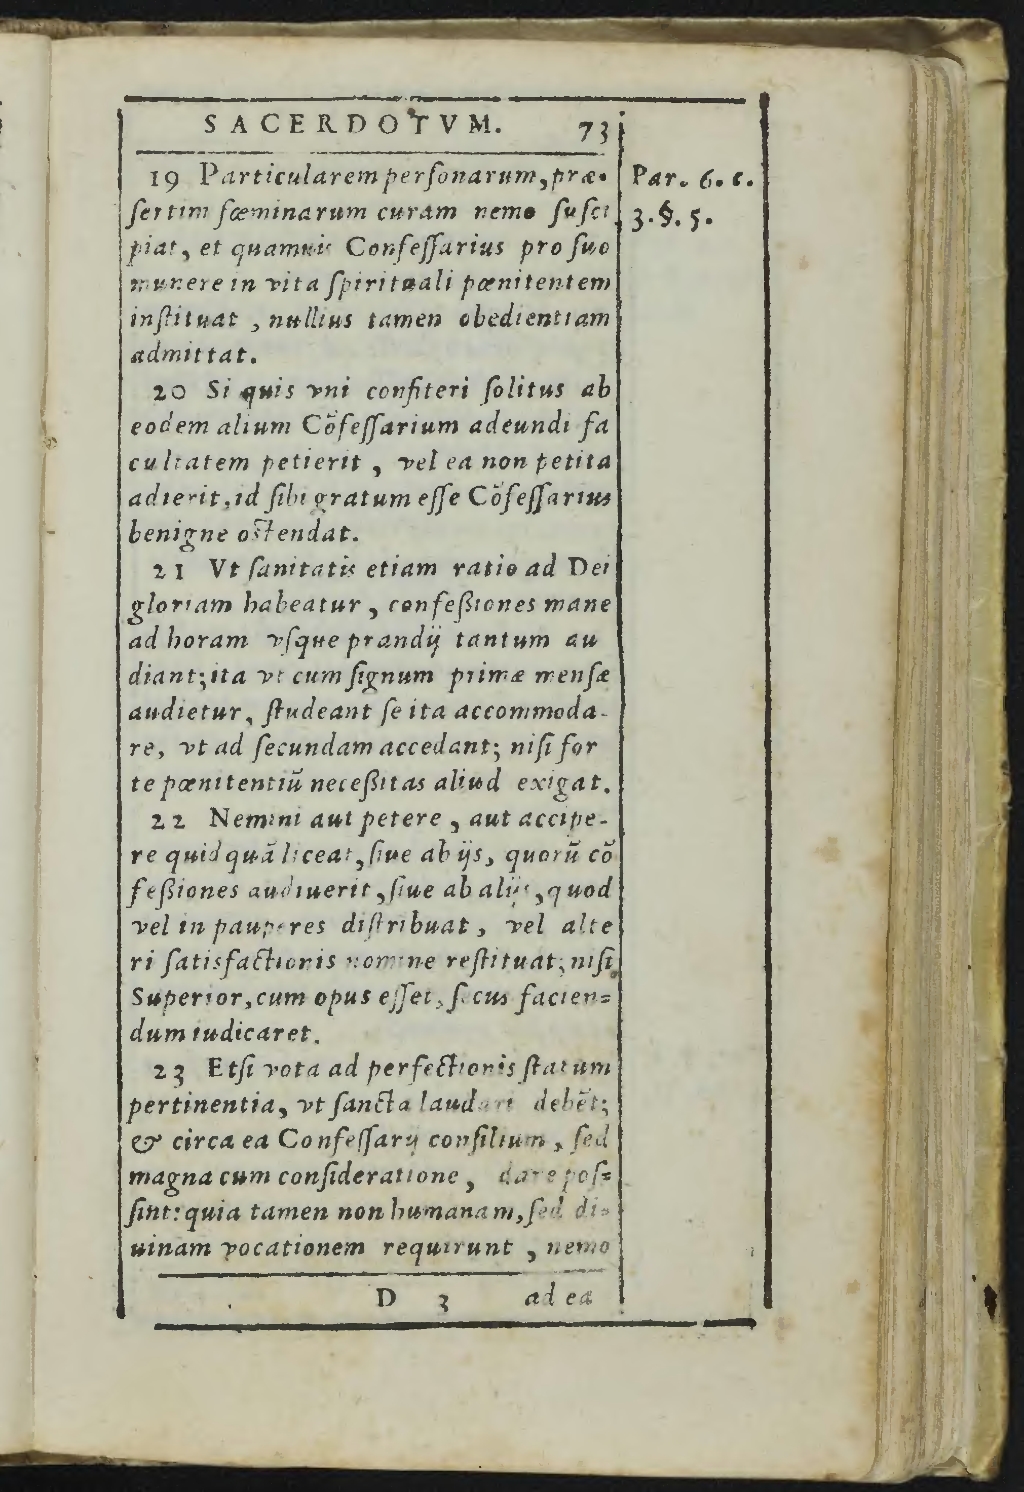 SACERDOTVM. 73
19 Particularem perſonarum, præ- Par. 6. c.
ſertim fœminarum curam nemo ſuſci 3. §. 5.
piat, et quamuis Confeſſarius pro ſuo
munere in vita ſpirituali pœnitentem
inſtituat, nullius tamen obedientiam
admittat.
20 Si quis vni confiteri ſolitus ab
eodem alium Cõfeſſarium adeundi fa
cultatem petierit, vel ea non petita
adierit, id ſibi gratum eſſe Cõfeſſarius
benigne oſtendat.
21 Vt ſanitatis etiam ratio ad Dei
gloriam habeatur, confeßiones mane
ad horam vſque prandij tantum au
diant; ita vt cum ſignum primæ menſæ
audietur, ſtudeant ſe ita accommoda-
re, vt ad ſecundam accedant; niſi for
te pœnitentiũ neceßitas aliud exigat.
22 Nemini aut petere, aut accipe-
re quidquã liceat, ſiue ab ijs, quorũ cõ
feßiones audiuerit, ſiue ab alijs, quod
vel in pauperes diſtribuat, vel alte
ri ſatisfactionis nomine reſtituat; niſi
Superior, cum opus eſſet, ſecus facien=
dum iudicaret.
23 Etſi vota ad perfectionis ſtatum
pertinentia, vt ſancta laudari debẽt;
& circa ea Confeſſarij conſilium, ſed
magna cum conſideratione, dare poſ=
ſint: quia tamen non humanam, ſed di=
uinam vocationem requirunt, nemo
D 3 ad ea